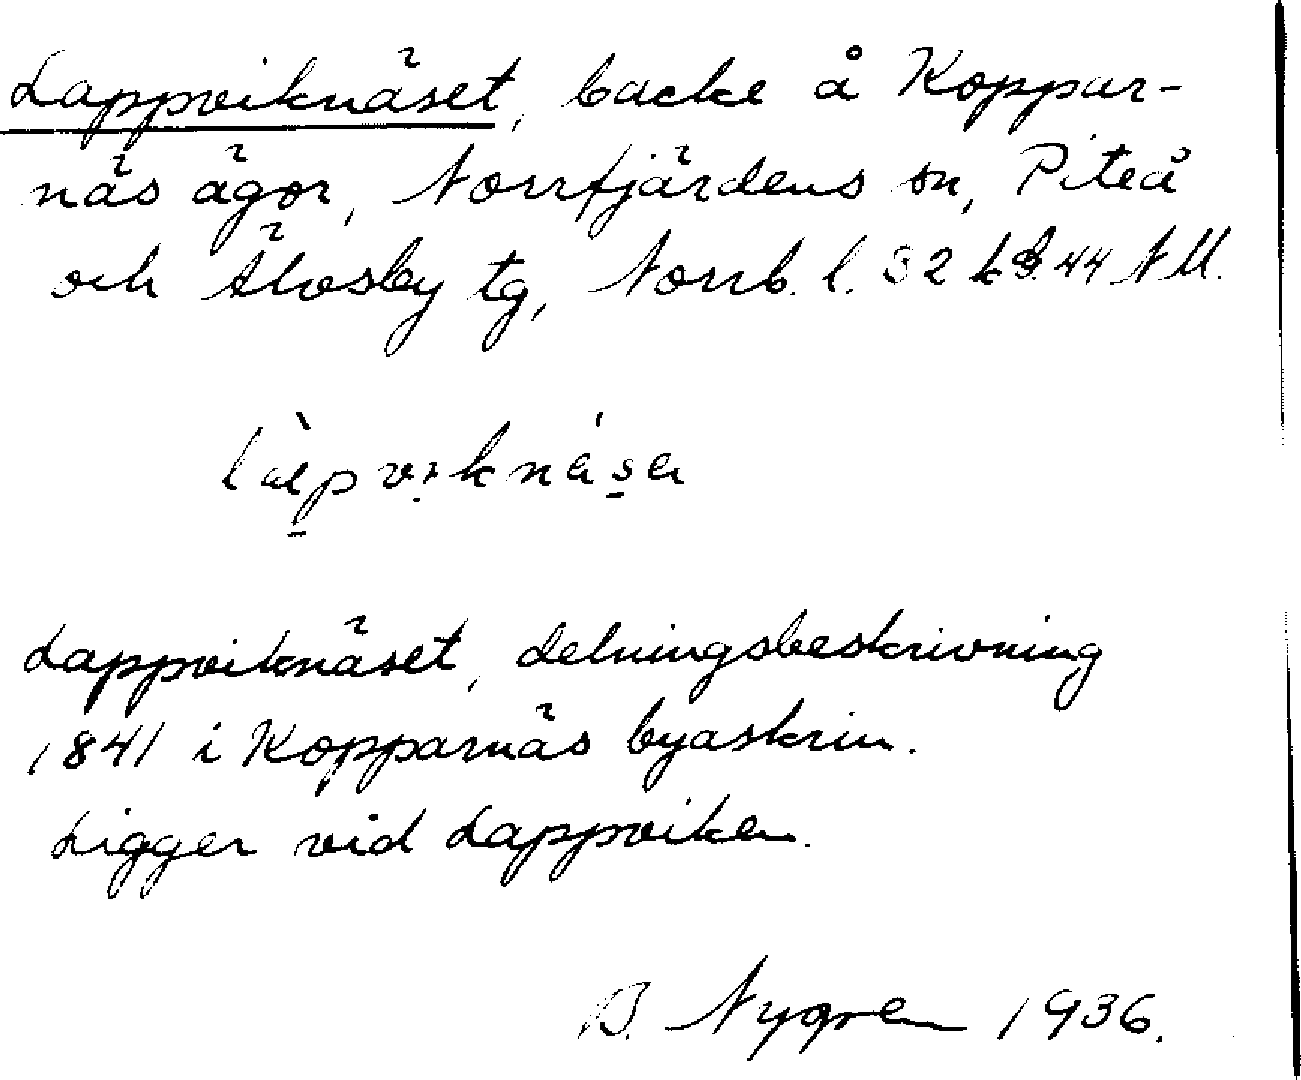 Lappviknäset, backe å Koppar-
näs ägor, Norrfjärdens sn, Piteå
och Älvsby tg, Norrb. l. 32 44 NU.
Lappviknäset, delningsbeskrivning
1841 i Kopparnäs byaskrin.
Ligger vid Lappviken.
B. Nygren 1936.